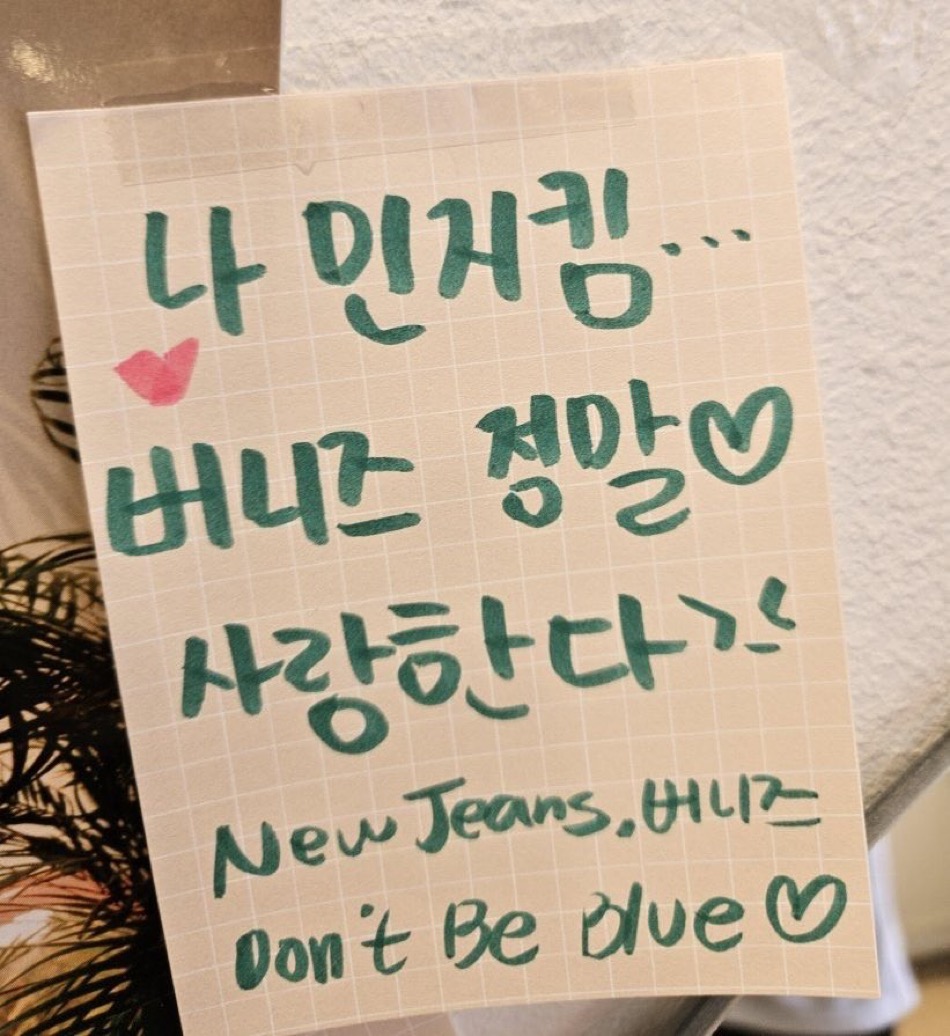 나 민지킴...
버니즈 정말♡
사랑한다
New Jeans, 버니즈
Don't Be Blue♡